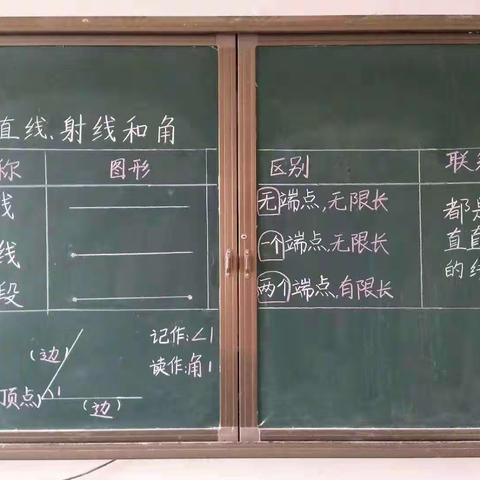 直线、射线和角
称 图形 区别 联系
线 无端点,无限长 都是
线 一个端点,无限长 直直
段 两个端点,有限长 的线
(边)
记作:∠1
读作:角1
顶点 1
(边)